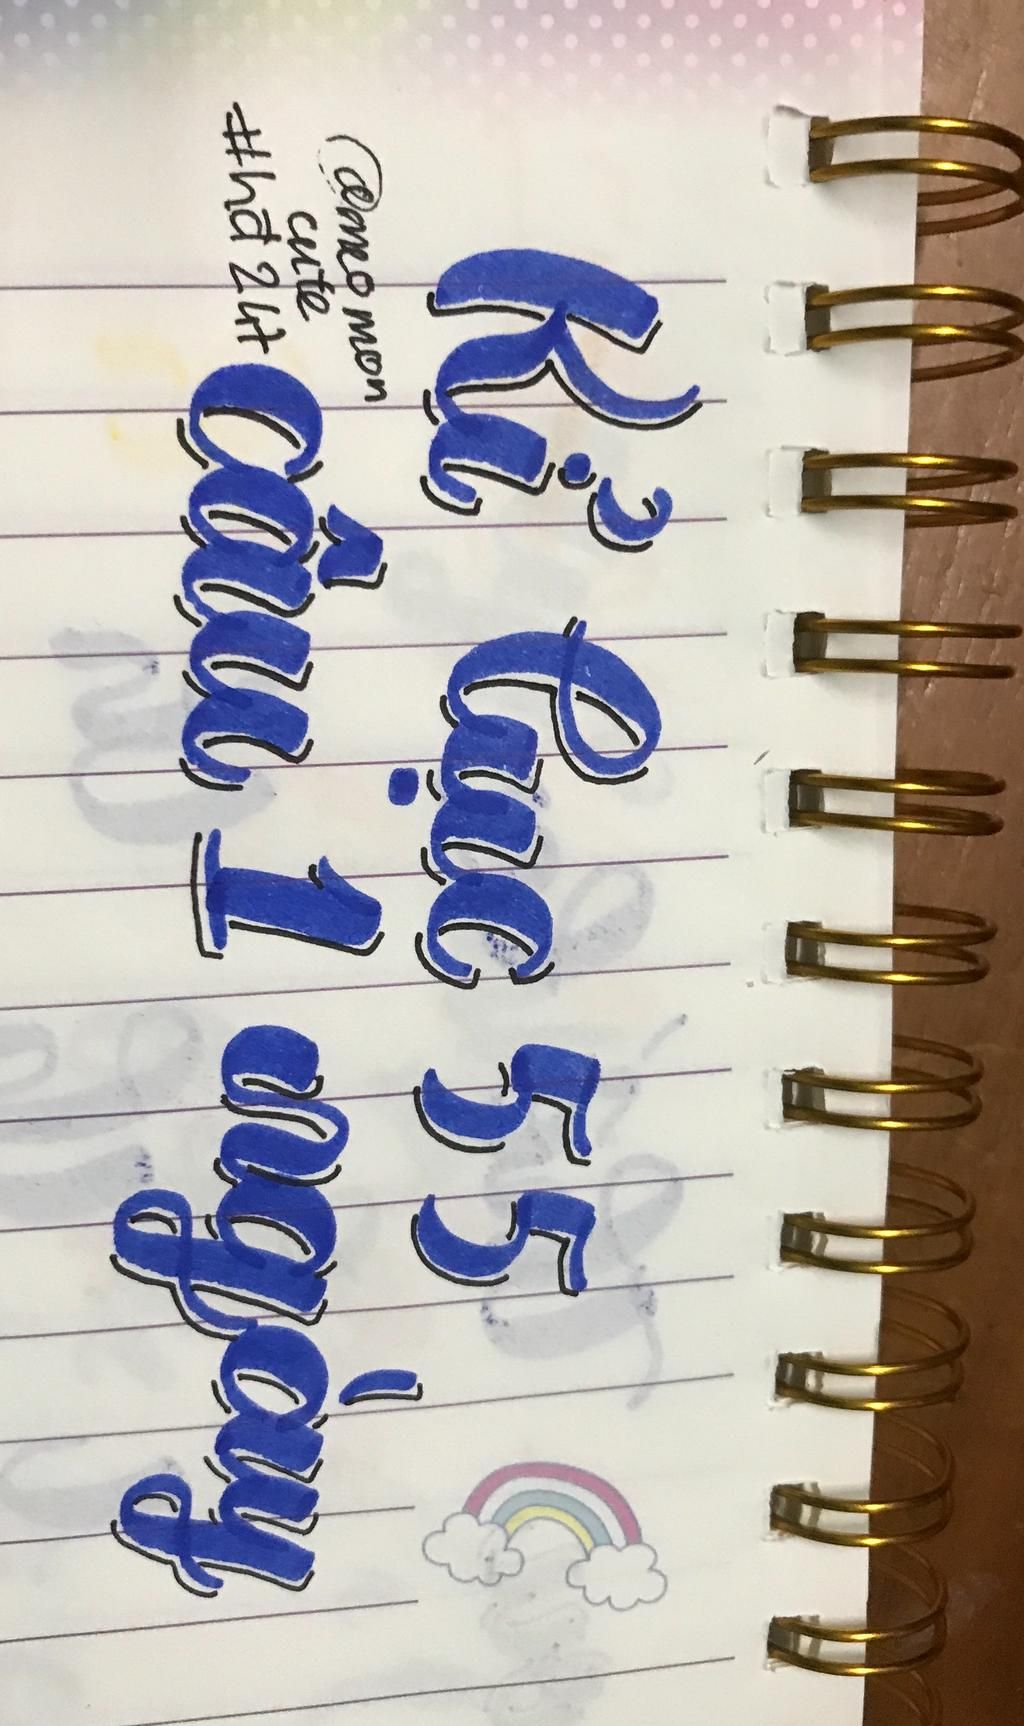 Kỉ lục 55
câu 1 ngày
@mo mon
cute
#hd 247